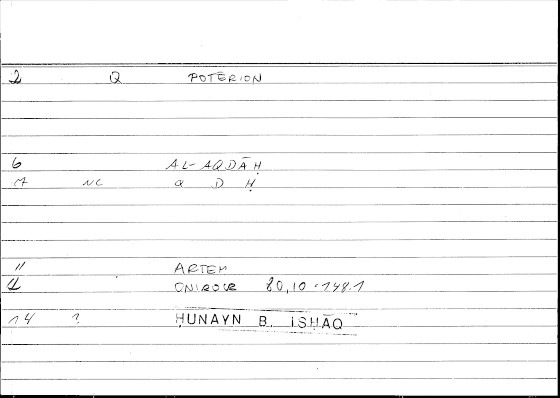 2 Q POTERION
6 AL-AQDĀḤ
7 NC Q D Ḥ
11 ARTEM
12 ONIROCR 80,10 · 148.1
14 ? ḤUNAYN B. ISḤĀQ